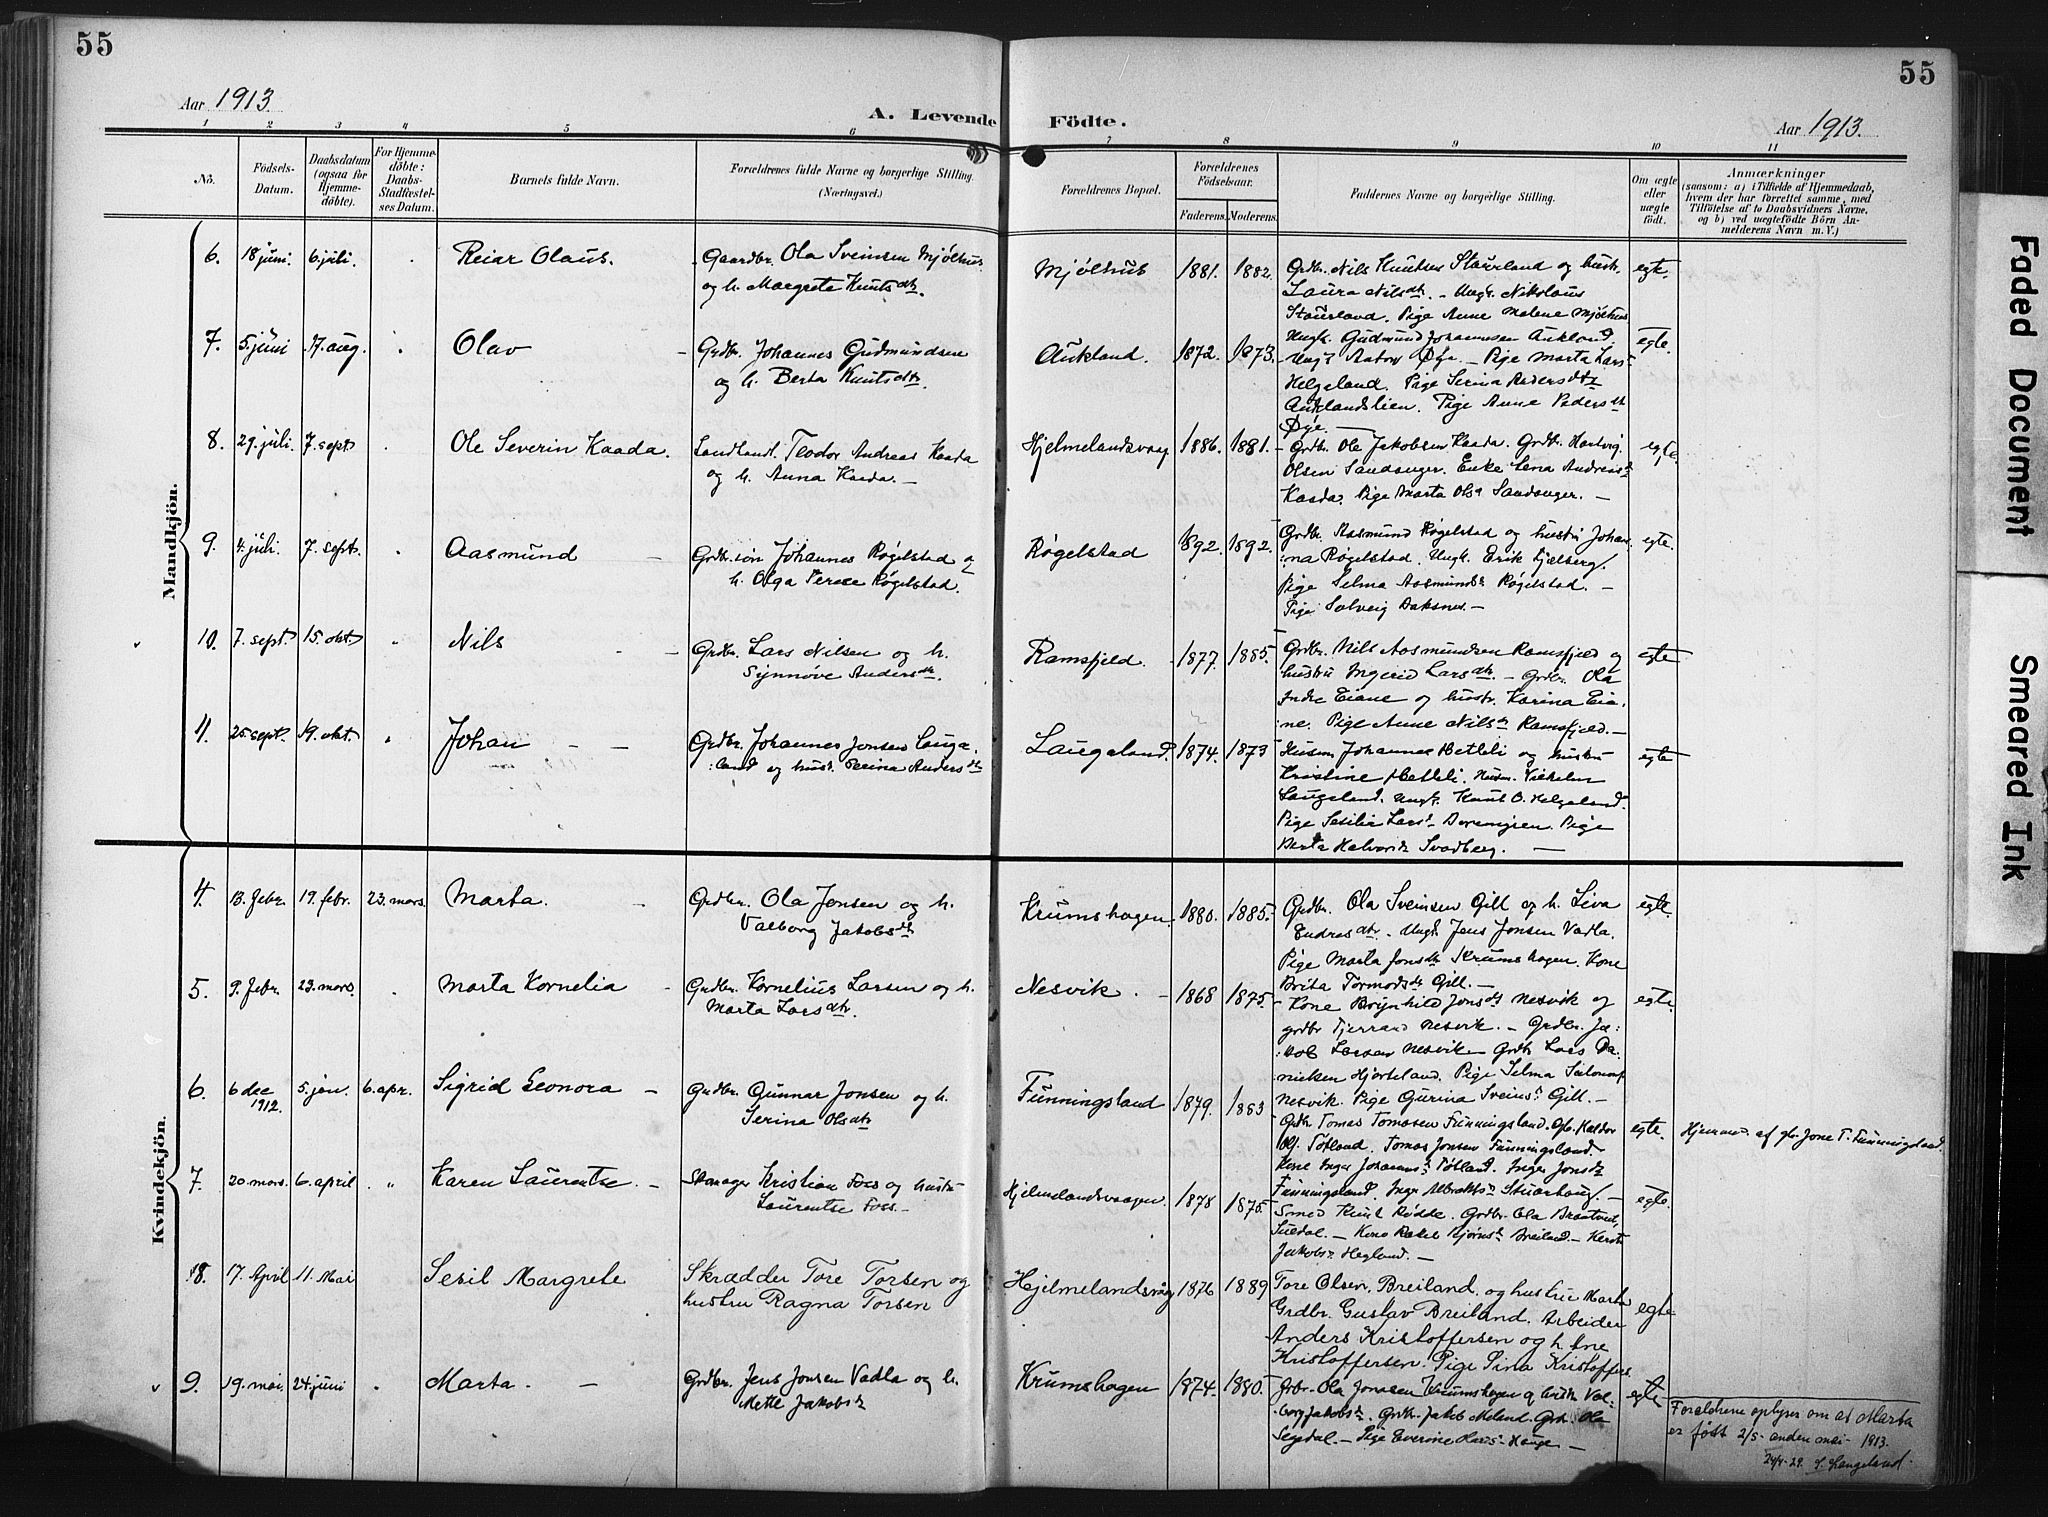 55
55
Aar 1913.
A. Levende Födte.
Aar 1913.
1 2 3 4 5 6 7 8 9 10 11
No.
Födsels-
Datum.
Daabsdatum
(ogsaa for
Hjemme-
döbte).
For Hjemme-
döbte:
Daabs-
Stadfæstel-
ses Datum.
Barnets fulde Navn.
Forældrenes fulde Navne og borgerlige Stilling.
(Næringsvei.)
Forældrenes Bopæl.
Forældrenes
Födselsaar.
Faderens. Moderens.
Faddernes Navne og borgerlige Stilling.
Om ægte
eller
uægte
födt.
Anmærkninger
(saasom: a) i Tilfælde af Hjemmedaab,
hvem der har forrettet samme, med
Tilföielse af to Daabsvidners Navne,
og b) ved uægtefödte Börn An-
melderens Navn m. V.)
Mandkjön.
6. 18 juni. 6. juli. Reiar Olaus. Gaardbr. Ola Sveinsen Mjølhus
og h. Margrete Knutsdtr. Mjølhus 1881. 1882. egte.
Grdbr. Nils Knutsen Staurland og hust.
Laura Nilsdtr. - Ungk. Nikolaus
Staurland. Pige Anne Malene Mjølhus
7. 5. juni 17. aug. Olav - Grdbr. Johannes Gudmundsen
og h. Berta Knutsdtr. Aukland. 1872. 1873. egte.
Ungk. Gudmund Johannesen Aukland,
Øye - Pige Marta Lars-
Helgeland. Pige Serina Pedersdtr
Auklandslien. Pige Anne Pedersdtr
Øye. -
8. 29. juli. 7. sept. Ole Severin Kaada. Landhandl. Teodor Andreas Kaada
og h. Anna Kaada. - Hjelmelandsvaag 1886. 1881. egte.
- Grdbr. Ole Jakobsen Kaada. Grdbr. Hartvig
Olsen Sandanger. Enke Lena Andreasd
Kaada. Pige Marta Olsd Sandanger. -
9. 4. juli. 7. sept. Aasmund - Grdbr.søn Johannes Røgelstad og
h. Olga Terese Røgelstad. Røgelstad 1892. 1892. egte.
Grdbr. Aasmund Røgelstad og hustru Johan-
na Røgelstad. Ungk. Erik Fjelberg.
Pige Selma Aasmundsd Røgelstad. -
Pige Solveig -
10. 7. sept. 15. okt. Nils Grdbr. Lars Nilsen og h.
Synnøve Andersdtr. Ramsfjeld. 1877. 1885. egte
Grdbr. Nils Aasmundsen Ramsfjeld og
hustru Ingerid Larsdtr. - Grdbr. Ola
Indre Eiane og hustr. Karina Eia-
ne. Pige Anne Nilsd Ramsfjeld. -
11. 25. sept. 19. okt. Johan - - Grdbr. Johannes Jonsen Lauga-
land og hust. Serina Andersdtr Laugaland. 1874. 1873 egte
Husm. Johannes Hetleli og hustru
Kristine Hetleli. Husm. Vilhelm
Laugaland. Ungk. Knut O. Helgeland.
Pige Sesilie Larsd Pige
Berta Halvorsd Svadberg. -
Kvindekjön.
4. 13. febr. 19. febr. 23. mars. Marta. - Grdbr. Ola Jonsen og h.
Valborg Jakobsdtr Krumshagen. 1880. 1885. egte.
Grdbr. Ola Sveinsen Gill og h. Liva
Endresdtr. - Ungk. Jens Jonsen Vadla.
Pige Marta Jonsdtr Krumshagen. Kone
Brita Tormodsd Gill. -
5. 9. febr. 23. mars. Marta Kornelia - Grdbr. Kornelius Larsen og h.
Marta Larsdtr. Nesvik. - 1868 1875. egte.
- Kone Brynhild Jonsdt Nesvik og
grdbr Tjerrand Nesvik. - Grdbr. Ja-
kob Larsen Nesvik - Grdbr Lars Da-
nielsen Hjorteland. Pige Selma
Nesvik. Pige Gurina Sveinsd Gill. -
6. 6 dec 1912. 5. jan. 6. apr. Sigrid Leonora - Grdbr. Gunnar Jonsen og h.
Serina Olsdtr Funningsland 1879. 1883 egte.
Grdbr Tomas Tomasen Funningsland. Haldor
Tøtland. Tomas Jonsen Funningsland.
Kone Inger Johannesd Tøtland. Inger Jonsdtr
Funningsland. Inger Stuarhaug. -
Hjemmed. af gbr. Jone T. Funningsland
7. 20. mars. 6. april Karen Laurentse. - Skomager Kristian Foss og hustru
Laurentse Foss. - Hjelmelandsvaagen. 1878 1875. egte.
Smed Knut Rødde. Grdbr. Ola Braatveit,
Suldal. - Kone Rakel Bjørnsd Breiland. -
Jakobsd Hegland. -
8. 17. April 11. Mai Sesil Margrete Skrædder Tore Torsen og
hustru Ragna Torsen Hjelmelandsvåg 1876 1889 egte
Tore Olsen Breiland og hustru Marta
Grdbr. Gustav Breiland. Arbeider
Anders Kristoffersen og h. Ane
Kristoffersen. Pige Sina Kristoffers.
9. 19. mai. 24. juni Marta. - Grdbr. Jens Jonsen Vadla og h.
Mette Jakobsd Krumshagen 1874. 1880. egte
Grbr. Ola Jonasen Krumshagen og hustr. Val-
borg Jakobsd. Grdbr. Jakob Meland. Grdbr. Ola
Segedal. - Pige Everine Hauge -
Forældrene oplyser om at Marta
er født 2/5 - anden mai - 1913.
24/4-29. S. Langeland.
Faded Document Smeared Ink